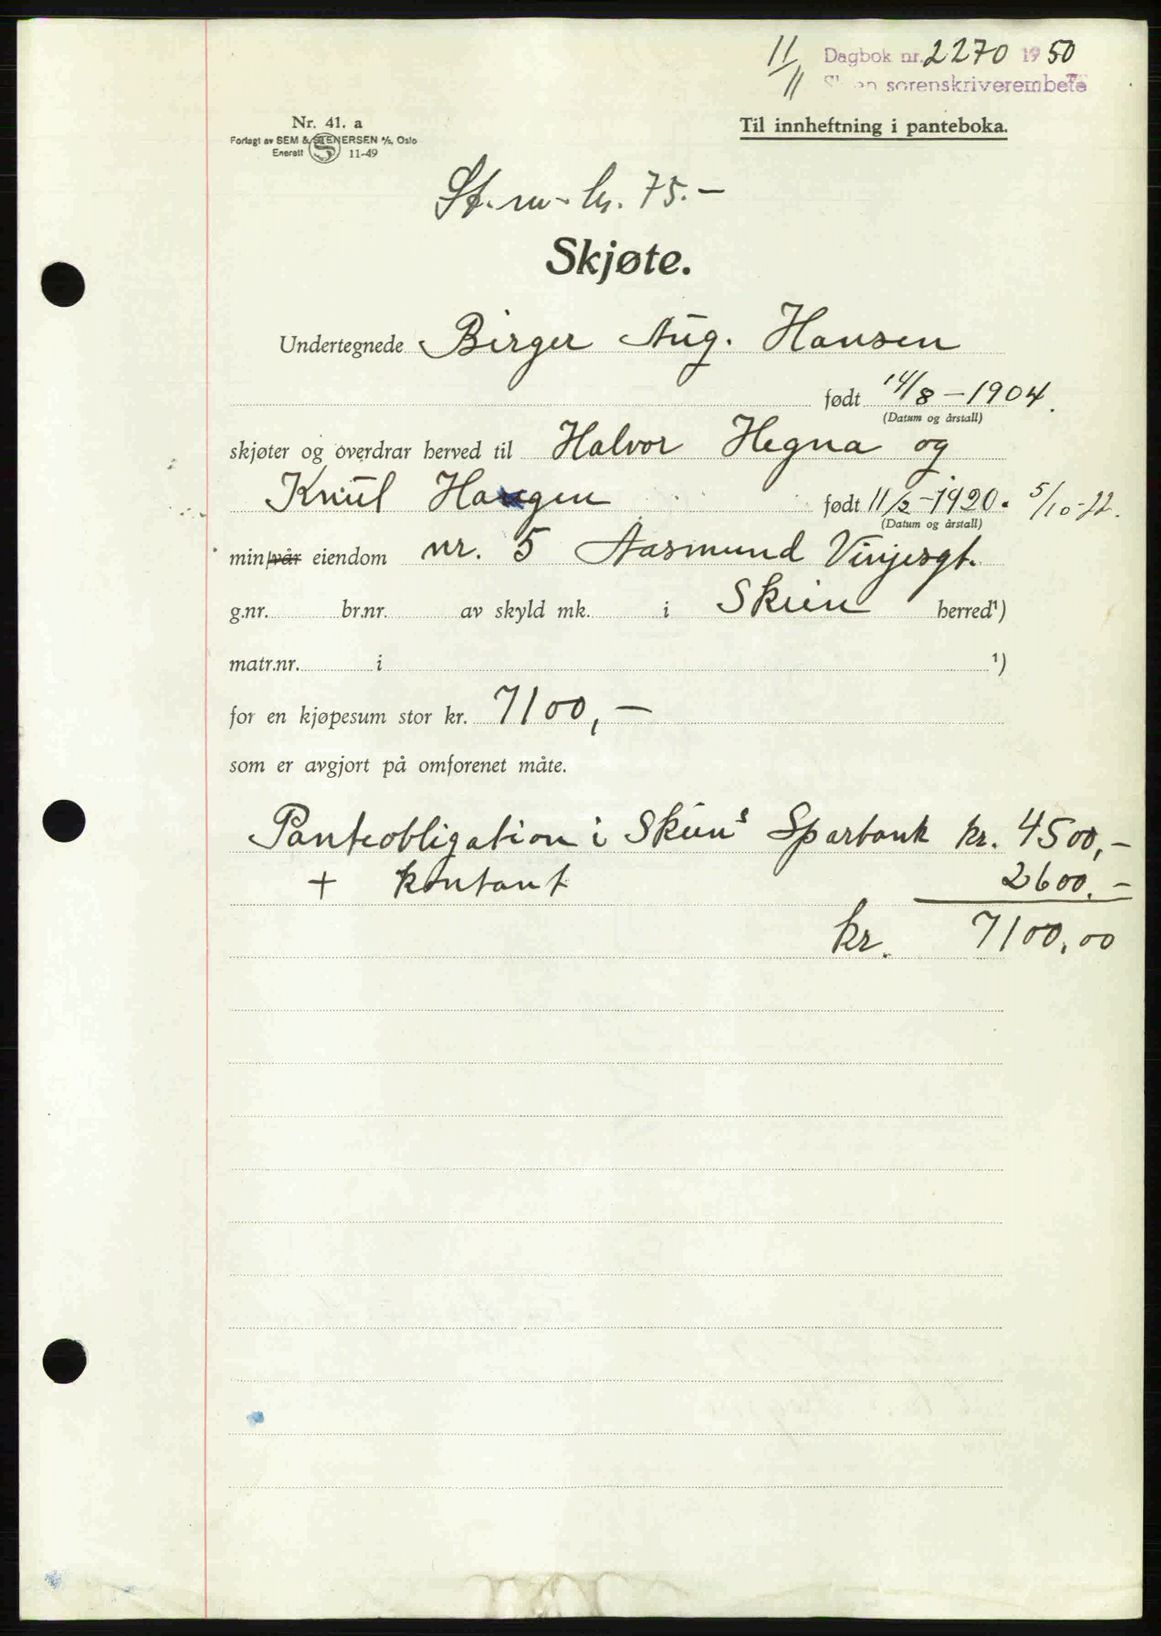 11/11 Dagbok nr. 2270 1950
sorenskriverembete
Nr. 41. a
Forlagt av SEM & STENERSEN A/S, Oslo
Enerett 11-49
Til innheftning i panteboka.
St.m. kr. 75.-
Skjøte.
Undertegnede Birger Aug. Hansen
født 14/8-1904.
(Datum og årstall)
skjøter og overdrar herved til Halvor Hegna og
Knut Haugen født 11/2-1920. 5/10-22.
(Datum og årstall)
min/vår eiendom nr. 5 Aasmund Vinjesgt.
g.nr. br.nr. av skyld mk. i Skien herred¹)
matr.nr. i ¹)
for en kjøpesum stor kr. 7100,-
som er avgjort på omforenet måte.
Panteobligation i Skiens Sparbank kr. 4500,-
+ kontant 2600.-
kr. 7100,00